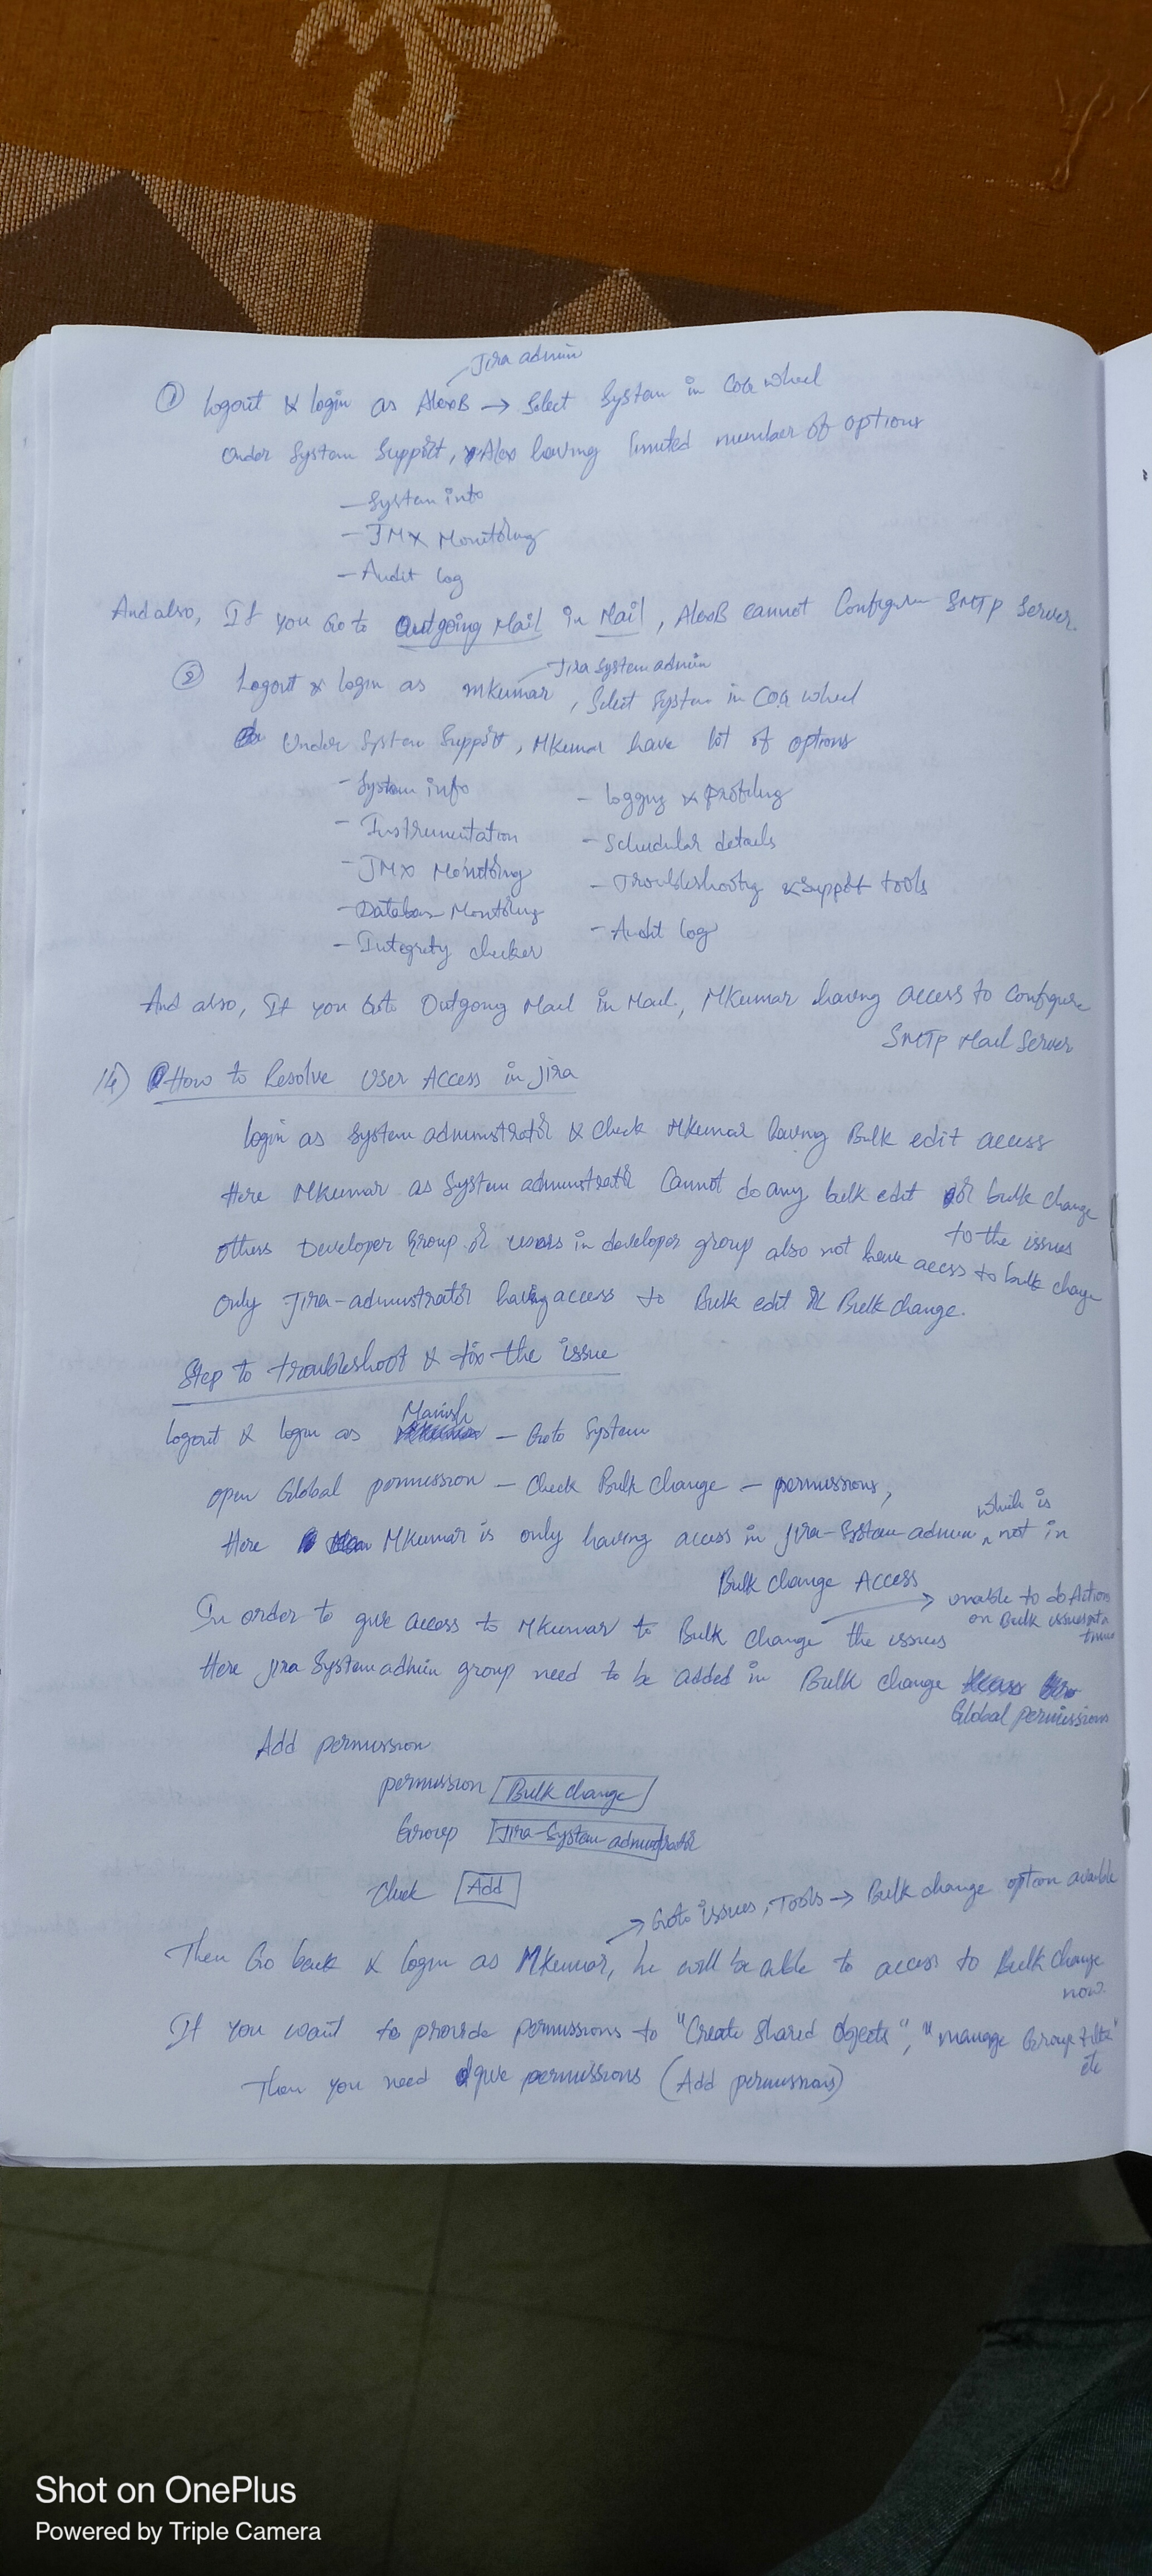 Jira admin
① Logout & login as AlexB → Select System in Cog wheel
Under System Support, Alex having limited number of options
- System info
- JMX Monitoring
- Audit log
And also, If you Go to Outgoing Mail in Mail, AlexB cannot Configure SMTP Server.
Jira System admin
② Logout & login as mkumar, Select System in COG wheel
Under System Support, MKumar have lot of options
- System info
- Instrumentation
- JMX Monitoring
- Database Monitoring
- Integrity checker
- Logging & profiling
- Schedular details
- Troubleshooting & Support tools
- Audit log
And also, If you Goto Outgoing Mail in Mail, MKumar having access to Configure
SMTP Mail Server
14) How to Resolve User Access in jira
Login as System administrator & check MKumar having Bulk edit access
Here MKumar as System administrator Cannot do any bulk edit or bulk change
to the issues
others Developer Group or users in developer group also not have access to bulk change
only Jira-administrator having access to Bulk edit or Bulk change.
Step to troubleshoot & fix the issue
Manish
Logout & login as - Goto System
open Global permission - Check Bulk Change - permissions,
which is
Here MKumar is only having access in Jira-System-admin, not in
Bulk change Access
→ unable to do Actions
on Bulk issues at a
time
In order to give access to MKumar to Bulk change the issues
Here jira System admin group need to be added in Bulk change
Global permissions
Add permission
permission Bulk change
Group Jira-System-administrator
click Add
→ Goto issues, Tools → Bulk change option available
Then Go back & login as MKumar, he will be able to access to Bulk change
now.
If you want to provide permissions to "Create Shared Objects", "manage Group filter"
etc
Then you need give permissions (Add permissions)
Shot on OnePlus
Powered by Triple Camera